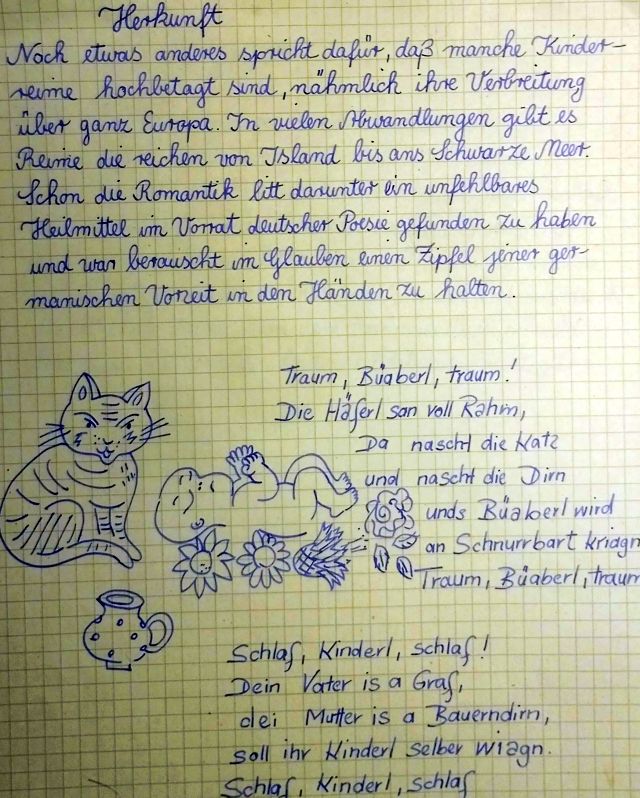 Herkunft
Noch etwas anderes spricht dafür, daß manche Kinder-
reime hochbetagt sind, nähmlich ihre Verbreitung
über ganz Europa. In vielen Abwandlungen gibt es
Reime die reichen von Island bis ans Schwarze Meer.
Schon die Romantik litt darunter ein unfehlbares
Heilmittel im Vorrat deutscher Poesie gefunden zu haben
und war berauscht im Glauben einen Zipfel jener ger-
manischen Vorzeit in den Händen zu halten.
Traum, Büaberl, traum!
Die Häferl san voll Rahm,
Da nascht die Katz
und nascht die Dirn
unds Büaberl wird
an Schnurrbart kriagn
Traum, Büaberl, traum
Schlaf, Kinderl, schlaf!
Dein Vater is a Graf,
dei Mutter is a Bauerndirn,
soll ihr Kinderl selber wiagn.
Schlaf, Kinderl, schlaf